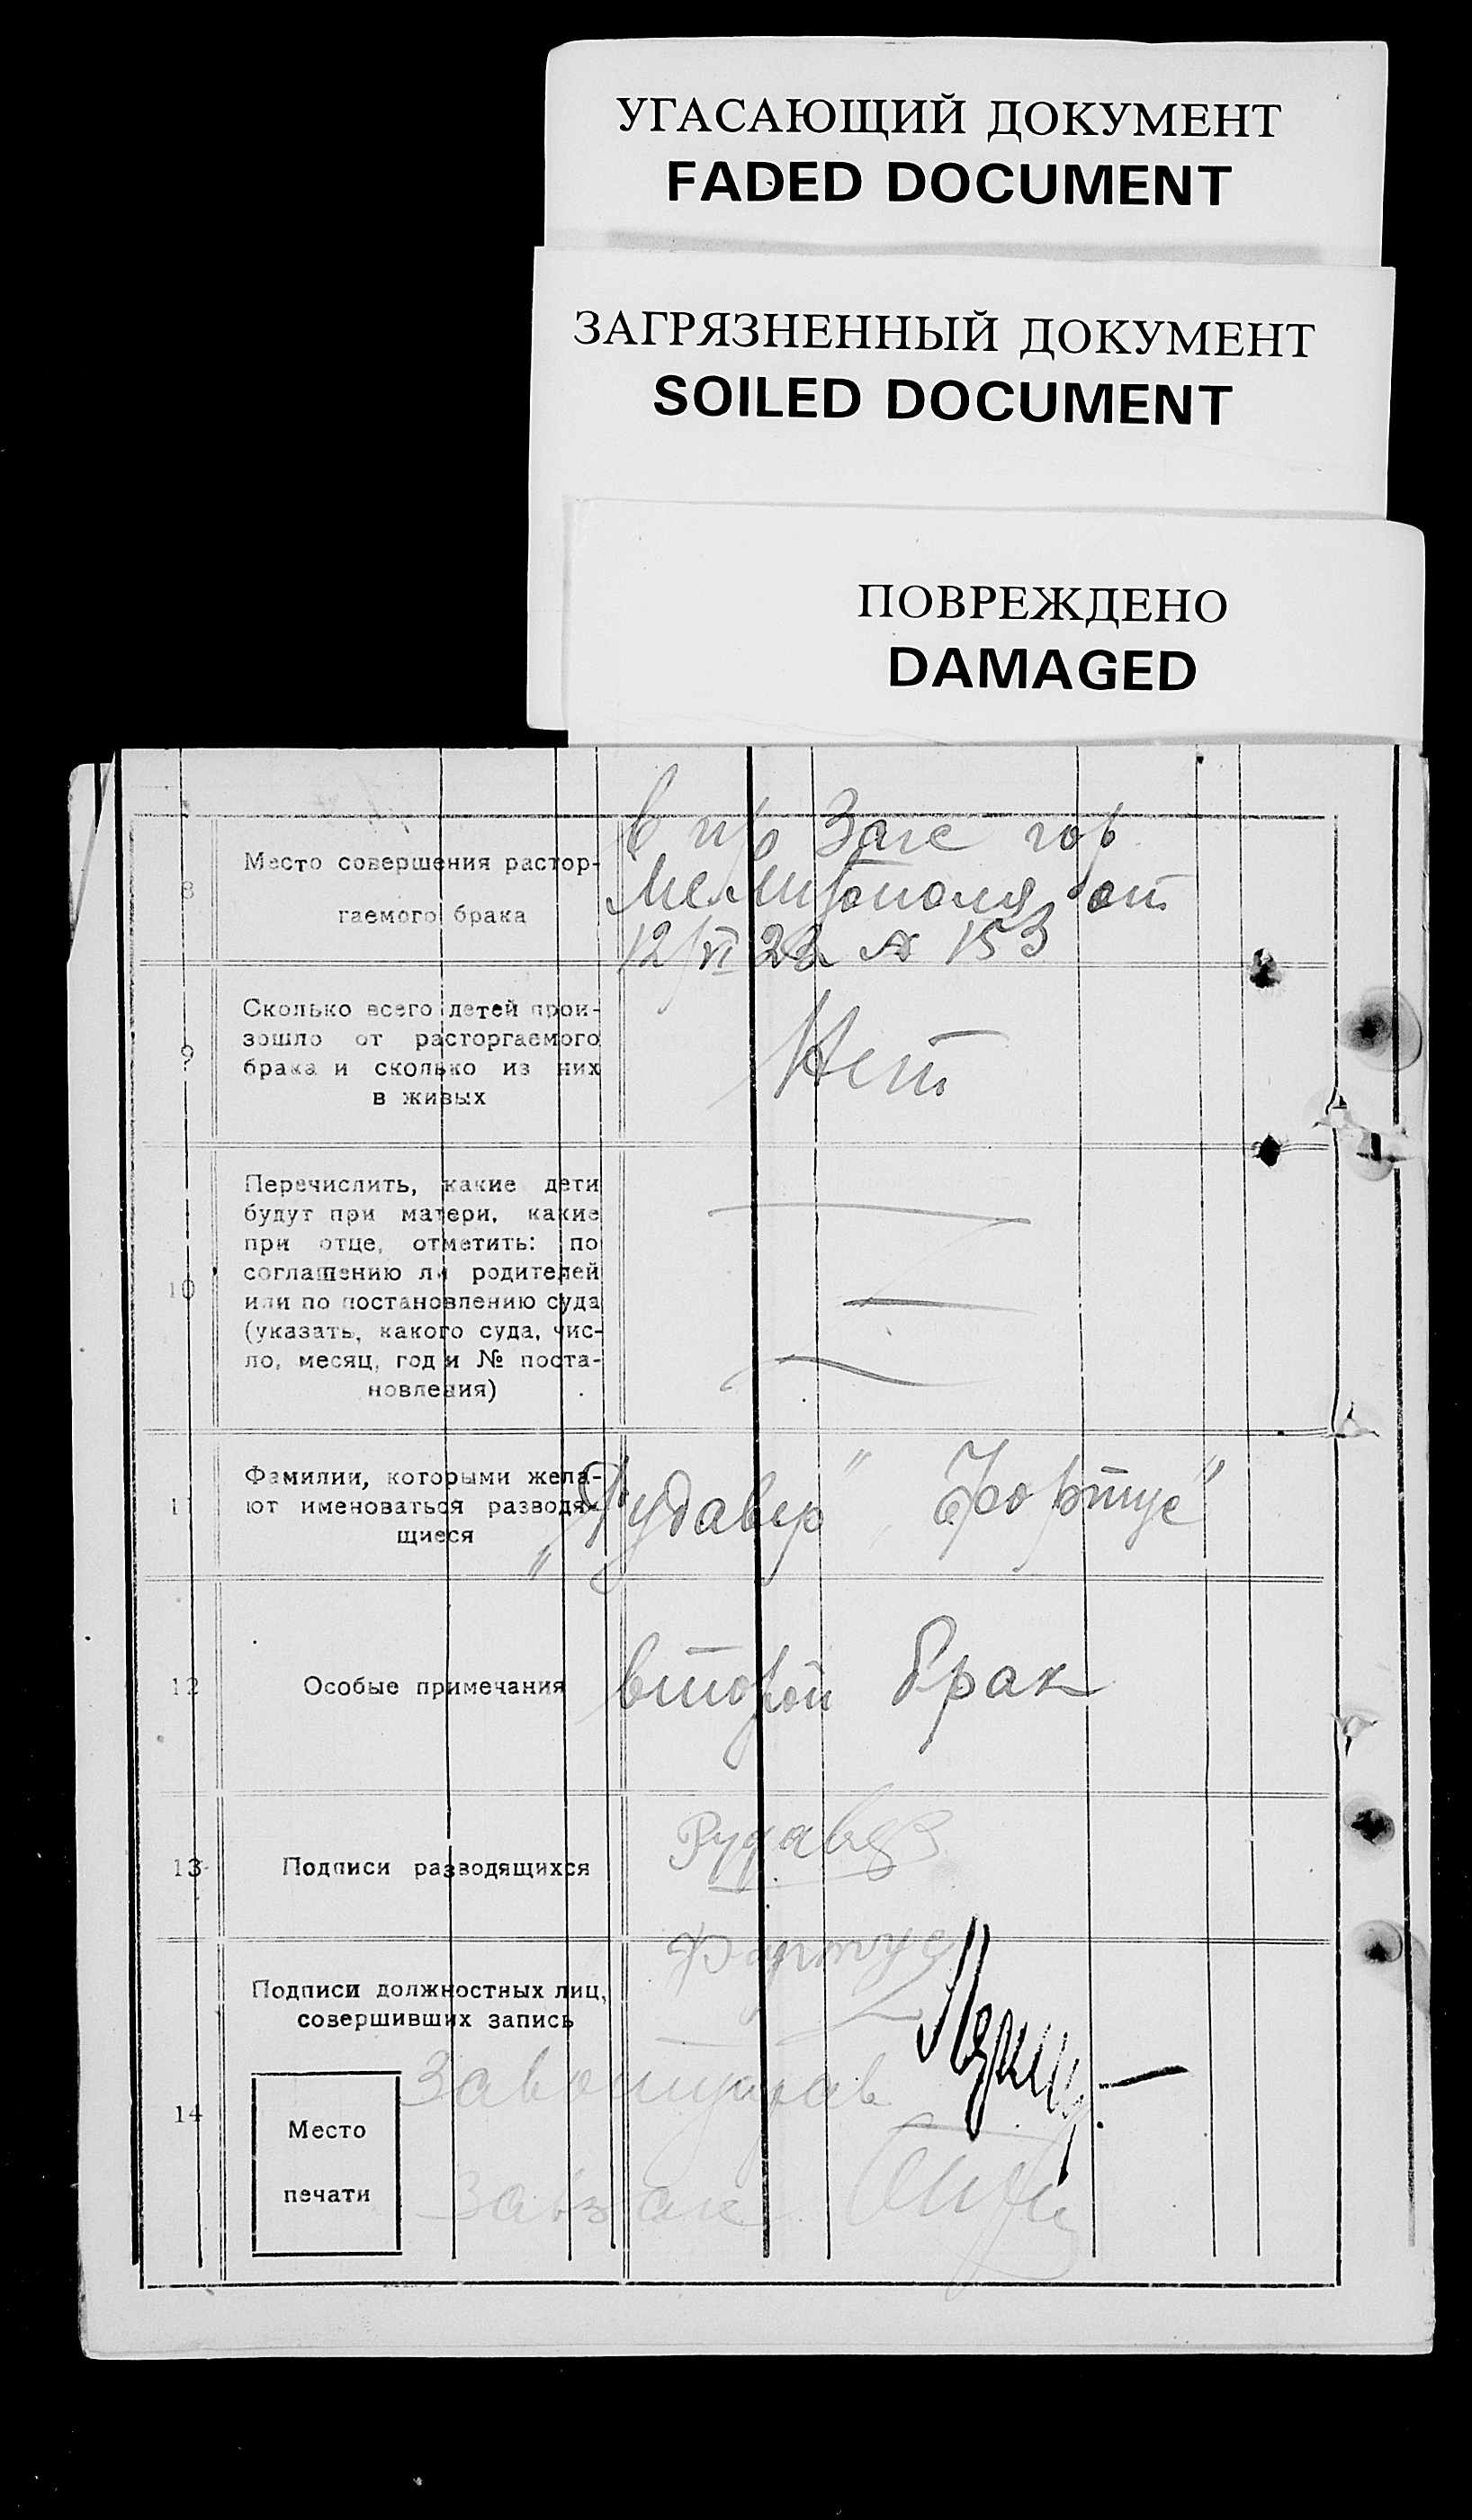 УГАСАЮЩИЙ ДОКУМЕНТ
FADED DOCUMENT
ЗАГРЯЗНЕННЫЙ ДОКУМЕНТ
SOILED DOCUMENT
ПОВРЕЖДЕНО
DAMAGED
8
Место совершения растор-
гаемого брака
В п/о Загс гор
Мелитополя от
12/VI 23 № 153
9
Сколько всего детей прои-
зошло от расторгаемого
брака и сколько из них
в живых
Нет
10
Перечислить, какие дети
будут при матери, какие
при отце, отметить: по
соглашению ли родителей
или по постановлению суда
(указать, какого суда, чис-
ло, месяц, год и № поста-
новления)
11
Фамилии, которыми жела-
ют именоваться разводя-
щиеся
„Рудавер" „Фортус"
12
Особые примечания
второй брак
13
Подписи разводящихся
Рудавер
Фортус
14
Подписи должностных лиц,
совершивших запись
Место
печати
Завзагс